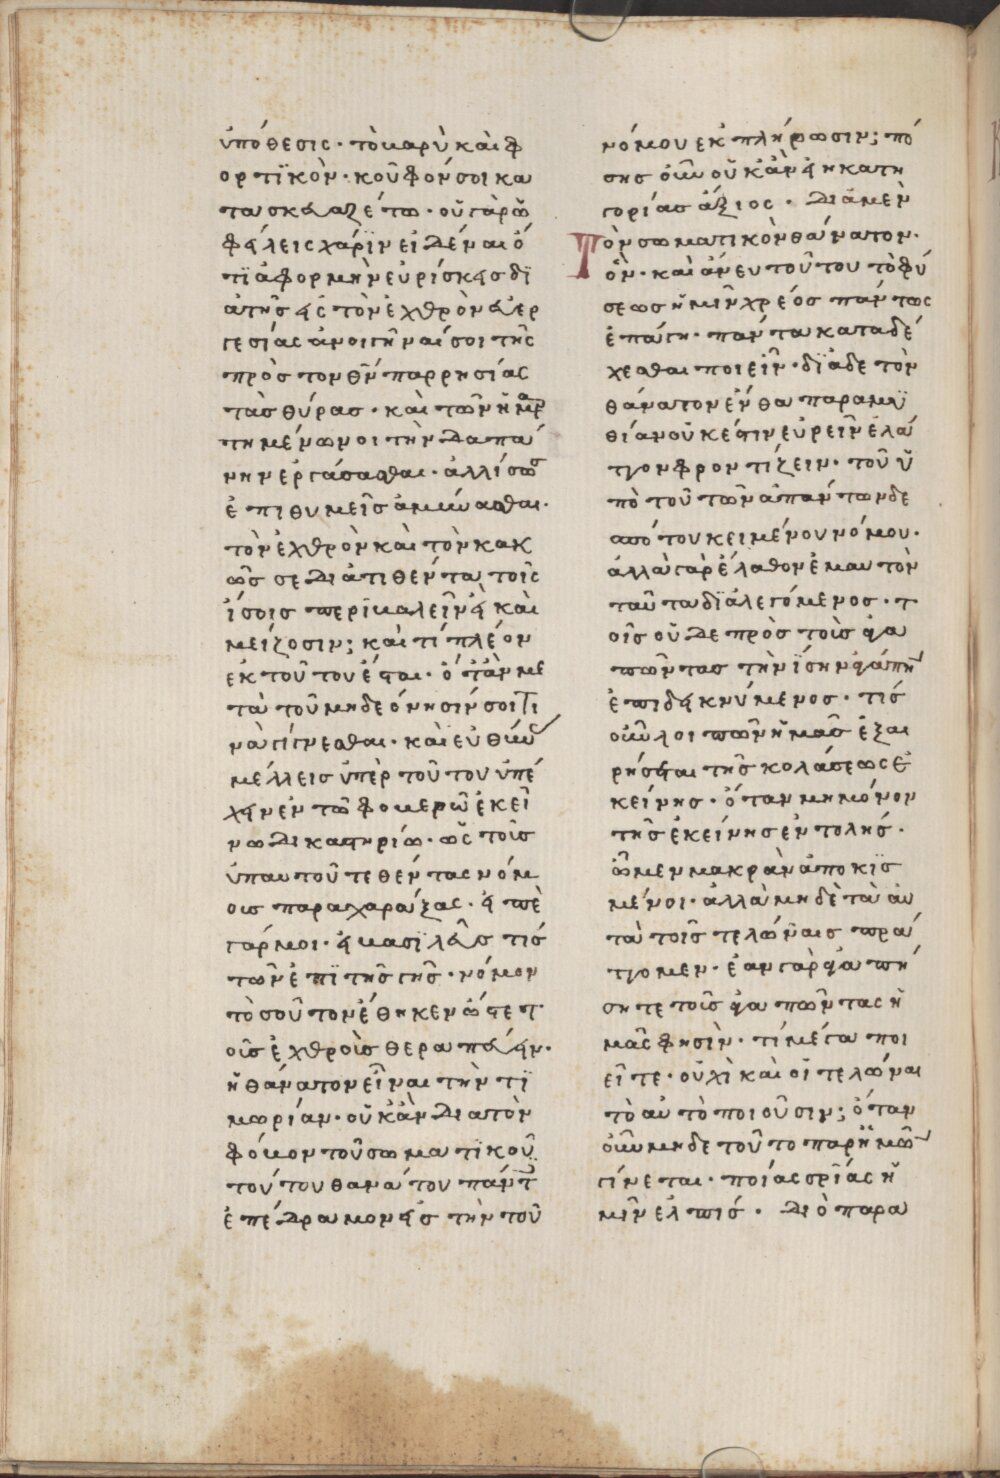 ὑπόθεσις · τὸ βαρὺ καὶ φ
ορτϊκὸν · κοῦφόν σοι κα
τασκευαζέτω · οὐ γὰρ ὀ
φείλεις χάρϊν εἰδέναι ὅ
τϊ ἀφορμὴν εὑρίσκεις δϊ
ὰ τῆς εἰς τὸν ἐχθρὸν εὐερ
γεσίας ἀνοιγῆναί σοι τῆς
πρὸς τον θν παρρησίας
τὰς θύρας · καὶ τῶν ἡμαρ
τημένων οι τὴν δαπά
νην ἐργάσασθαι · ἀλλ ίσως
ἐπιθυμεῖς ἀμύνασθαι ·
τὸν ἐχθρὸν καὶ τὸν κακ
ῶς σε διατιθέντα τοῖς
ἴσοις περϊβαλεῖν ἢ καὶ
μείζοσιν; καὶ τί πλέον
ἐκ τούτου ἔσται · ὅταν με
τὰ τοῦ μηδε ὄνησίν σοι τι
νὰ γίγνεσθαι · καὶ εὐθύν
μέλλεις ὑπὲρ τούτου ὑπέ
χειν ἐν τῶ φοβερῶ ἐκεί
νω δικαστηρίω · ὡς τοῖς
ὑπ αυτοῦ τεθέντας νόμ
ους παραχαράξας · εἰπὲ
γάρ μοι · εἰ βασϊλεύς τίς
τῶν ἐπϊ τῆς γῆς · νόμον
τὸσοῦτον ἔθηκεν ὥστε τ
οῖς ἐχθροὶς θεραπεύειν ·
ἢ θάνατον εἶναι τὴν τϊ
μωρίαν · οὐκ ἂν δια τὸν
φόβον τοῦ σωματϊκοῦ
τούτου θανάτου πάντ
ἐπέδραμον εἰς τὴν τοῦ
νόμου ἐκπλήρωσιν; πό
σης οὖν οὐκ ἂν εἴη κατη
γορίας ἄξιος · διὰ μὲν
Τὸν σωματικὸν θάνατον ·
ὃν · καὶ ἄνευ τούτου τὸ φύ
σεως ἡμῖν χρέος πάντως
ἐπάγη · πάντα καταδέ
χεσθαι ποιεῖν · δϊὰ δε τὸν
θάνατον ἔνθα παραμυ
θίαν οὐκ ἔστιν εὑρεῖν ἐλά
ττον φροντίζειν · τοῦ ὑ
πὸ τοῦ τῶν ἁπάντων δε
σπότου κειμένου νόμου ·
ἀλλὰ γὰρ ἔλαθον ἐμαυτὸν
ταῦτα δϊαλεγόμενος · τ
οῖς οὐδε πρὸς τοὺς ἀγα
πῶντας τὴν ϊσην ἀγάπην
ἐπιδεικνύμενος · τίς
οὖν λοιπὸν ἡμᾶς ἐξαι
ρήσεται τῆς κολάσεως ἐ
κείνης · ὅταν μὴ μόνον
τῆς ἐκείνης ἐντολῆς ·
ὦμεν μακρὰν ἀποκϊσ
μένοι · ἀλλὰ μηδὲ τὰ αὐ
τὰ τοῖς τελώναις πρά
ττομεν · ἐαν γὰρ ἀγαπή
σητε τοῖς ἀγαπῶντας ἡ
μᾶς φησὶν · τί μέγα ποι
εῖτε · οὐχὶ καὶ οἱ τελῶναι
τὸ αὐτὸ ποιοῦσιν; ὅταν
οὖν μηδε τοῦτο παρ ἡμῶν
γίνεται · ποίας σρίας ἡ
μῖν ἐλπίς · διὸ παρα